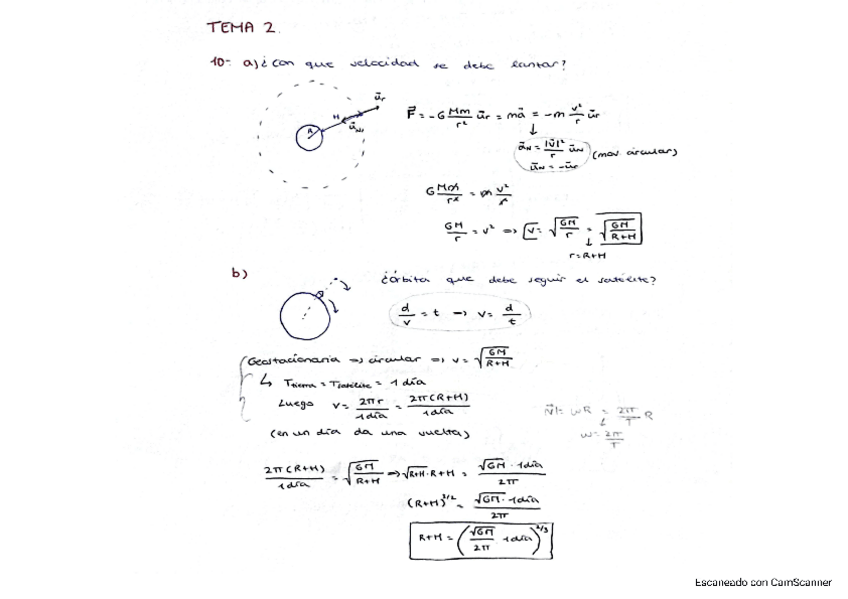 TEMA 2.
10- a) ¿Con que velocidad se debe lanzar?
R H u⃗r u⃗N
F⃗ = -G Mm/r² u⃗r = ma⃗ = -m v²/r u⃗r
↓
a⃗N = |v⃗|²/r u⃗N (mov circular)
u⃗N = -u⃗r
G Mm/r² = m v²/r
GM/r = v² => v = √(GM/r) = √(GM/(R+H))
↓
r=R+H
b) ¿órbita que debe seguir el satélite?
d/v = t → v = d/t
Geostacionaria => circular => v = √(GM/(R+H))
↳ Ttierra = Tsatélite = 1 día
Luego v = 2πr/1día = 2π(R+H)/1día
(en un día da una vuelta)
|v⃗| = ωR = 2π/T R
↓
ω = 2π/T
2π(R+H)/1día = √(GM/(R+H)) => √R+H · R+H = √GM · 1día/2π
(R+H)^3/2 = √GM · 1día/2π
R+H = (√GM/2π 1día)^2/3
Escaneado con CamScanner